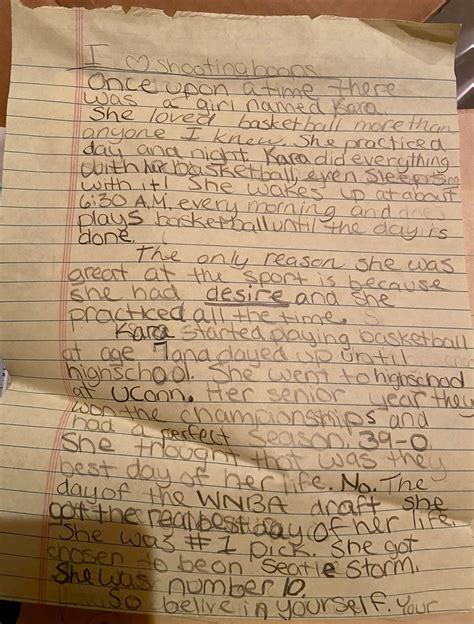 I ♡ shooting hoops
Once upon a time there
was a girl named Kara.
She loved basketball more than
anyone I knew. She practiced
day and night. Kara did everything
with her basketball, even sleep
with it! She wakes up at about
6:30 A.M. every morning and
plays basketball until the day is
done.
The only reason she was
great at the sport is because
she had desire and she
practiced all the time.
Kara started playing basketball
at age 7 and dayed up until
highschool. She went to highschool
at UConn. Her senior year they
won the championships and
had a perfect season. 39-0
She thought that was they
best day of her life. No. The
day of the WNBA draft she
got the real best day of her life.
She was #1 pick. She got
chosen to be on Seatle Storm.
She was number 10.
So belive in yourself. Your